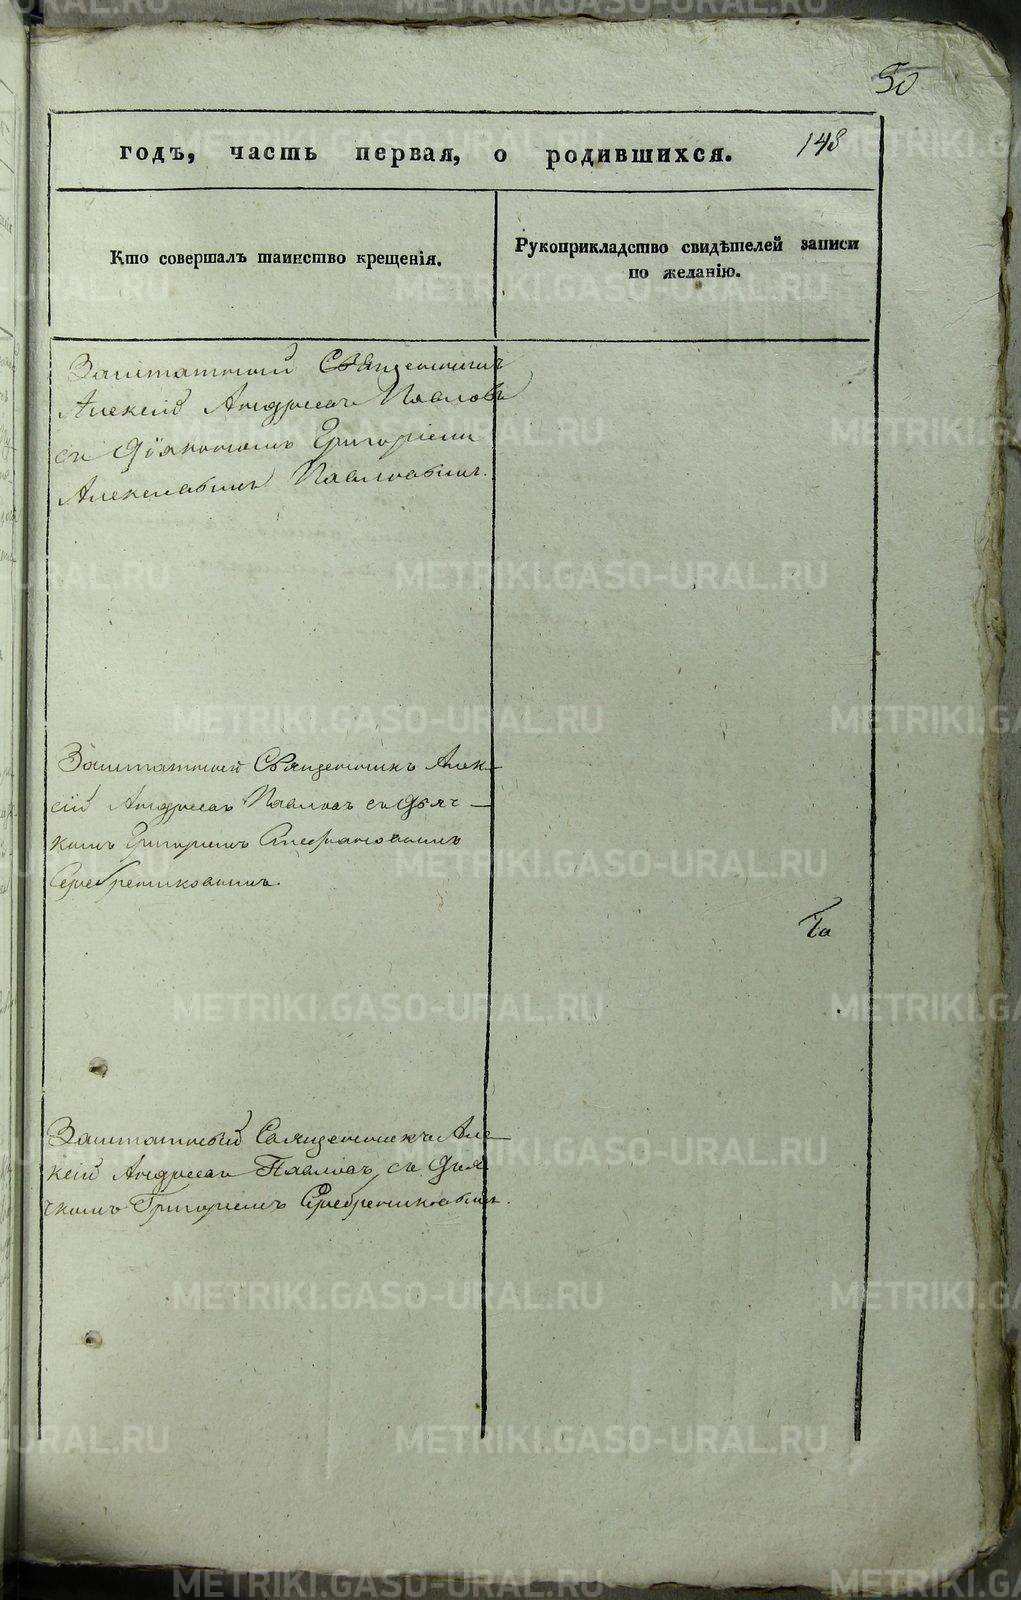 50
годъ, часть первая, о родившихся. 143
Кто совершалъ таинство крещенія.
Рукоприкладство свидѣтелей записи
по желанію.
Заштатный Священникъ
Алексій Андреевъ Павловъ
съ Діякономъ Григоріемъ
Алексѣевымъ Павловымъ.
Заштатный Священникъ Алек-
сій Андреевъ Павловъ съ Дьяч-
комъ Григорiемъ Стефановымъ
Серебрениковымъ.
Заштатный Священникъ Але-
ксій Андреевъ Павловъ, съ Дья
чкомъ Григорiемъ Серебрениковымъ.
METRIKI.GASO-URAL.RU